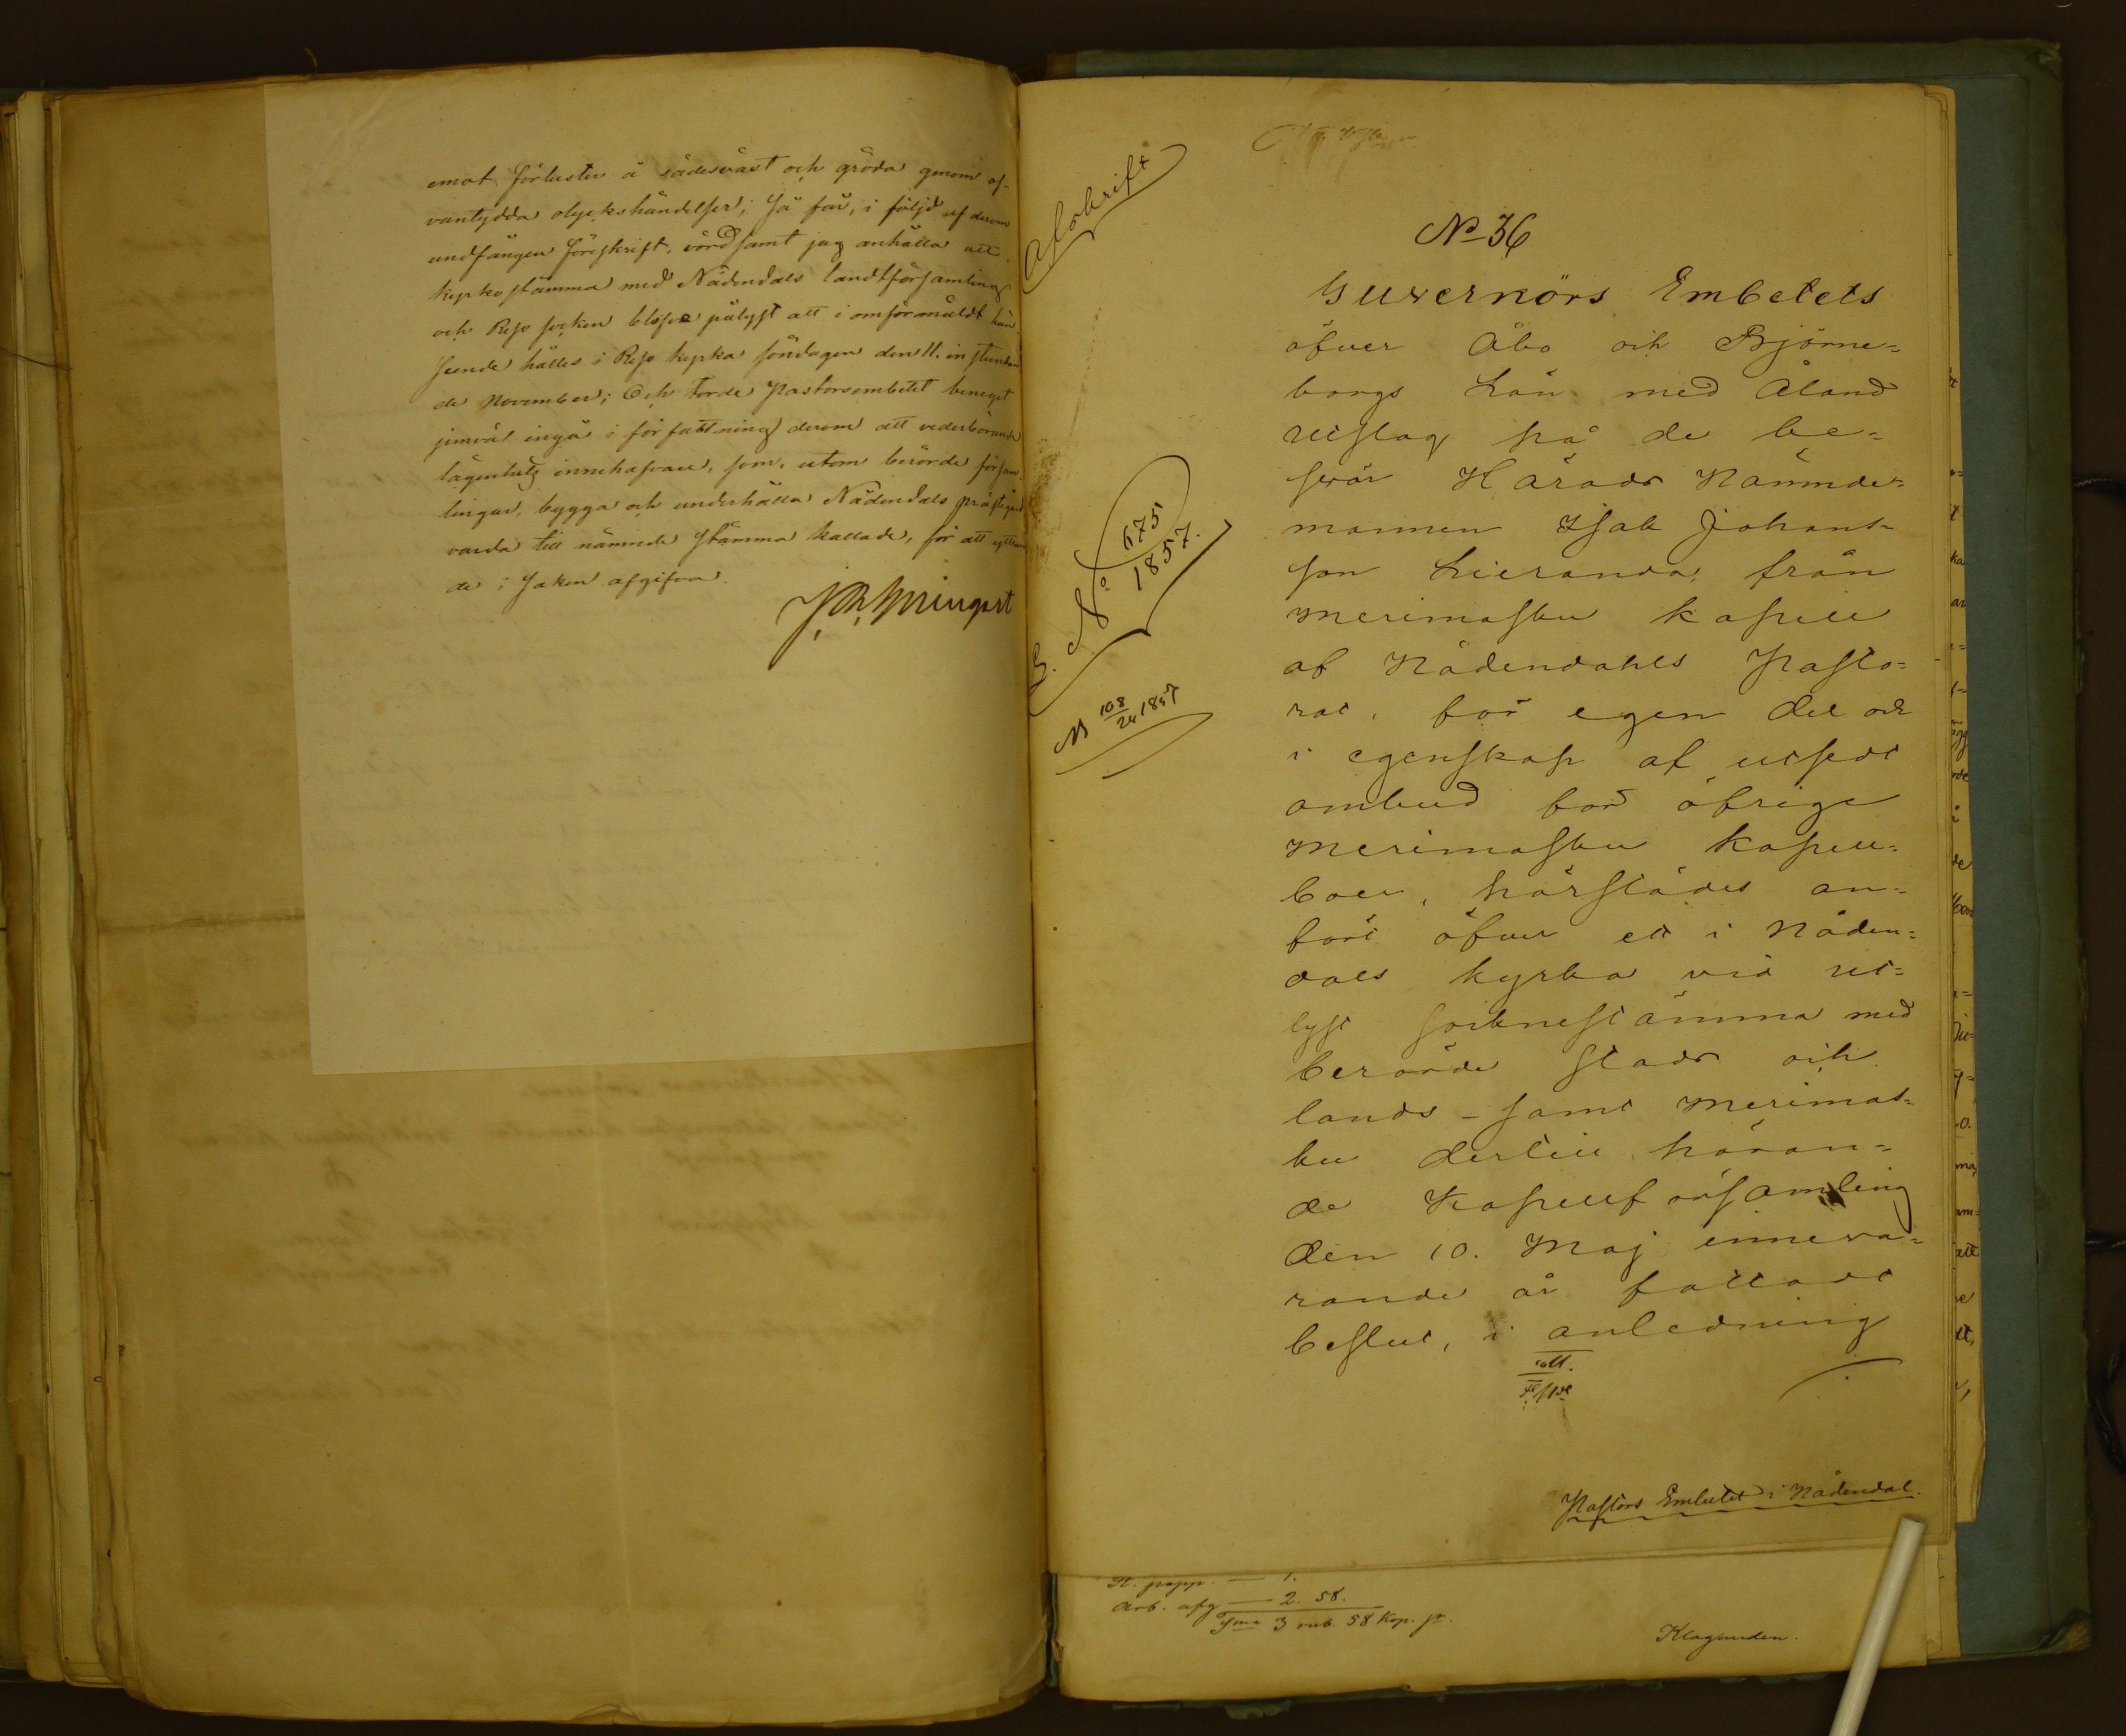 emot förluster å sädesväxt och gröda genom of-
vantydda olyckshändelser; Så får, i följd af derom
undfången föreskrift, vördsamt jag anhålla att
kyrkostämma med Nådendals landtförsamling
och Reso socken blefve pålyst att i omförmäldt hän-
seende hålles i Reso kyrka söndagen den 11. instundan
de November; Och torde Pastorsembetet beneget
jemväl ingå i författning derom att vederbörande
lägenhets innehafvare, som, utom berörde försam
lingar, bygga och underhålla Nådendals prästgård
varda till nämnde stämma kallade, för att yttran
de i saken afgifva.
Afskrift
No 675
1857.
108
24 1857
No 36
Guvernörs Embetets
öfver Åbo och Björne=
borgs Län med Åland
utslag på de be=
svär Härads Nämnde=
mannen Isak Johans=
son Lieranda från
Merimasku kapell
af Nådendahls Pasto=
rat, för egen del och
i egenskap af utsedt
ombud för öfrige
Merimasku kapell=
boer, härstädes an=
fört öfver ett i Nåden=
dals kyrka vid ut=
lyst socknestämma med
berörde stads och
lands - samt Merimas=
ku dertill höran=
de Kapellförsamling
den 10. Maj inneva=
rande år fattadt
beslut, i anledning
coll.
Pastors Embetet i Nådendal.
St. papp. — 1.
Arb. afg — 2. 58.
Sma 3 rub. 58 Kop. sr.
Klaganden.